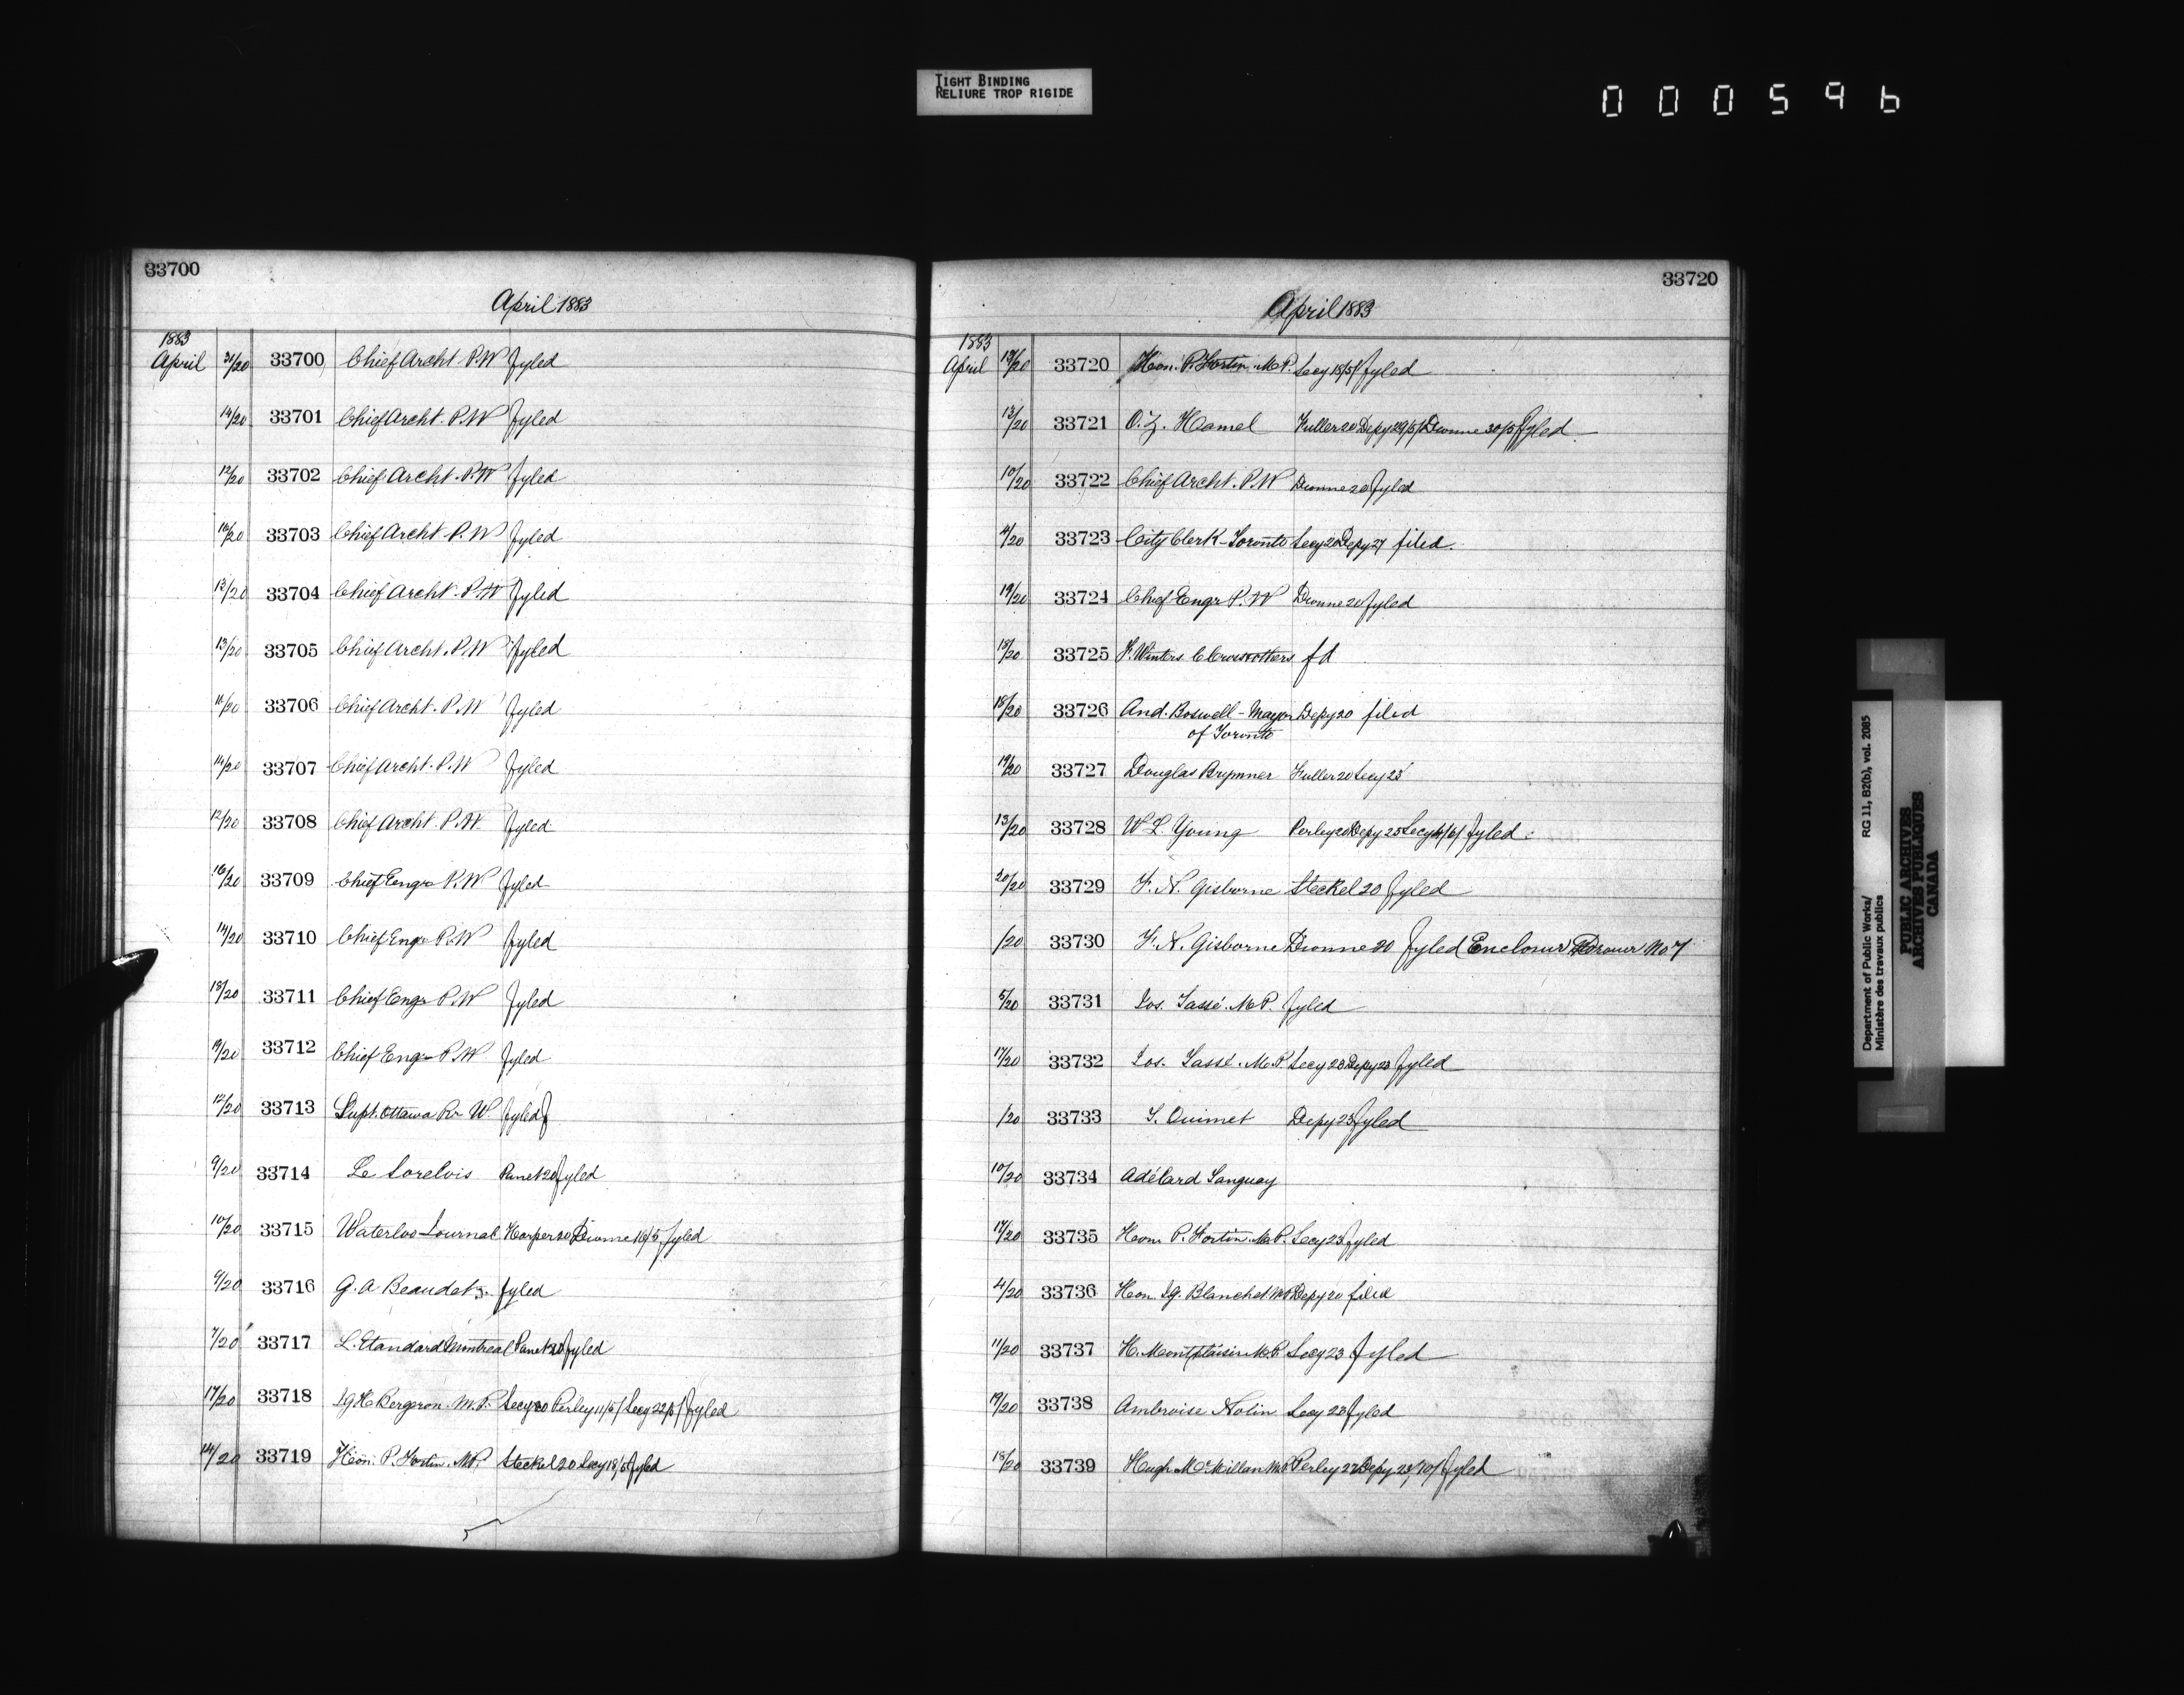 TIGHT BINDING
RELIURE TROP RIGIDE
000596
33700
April 1883
1883
April 31/20 33700 Chief Archt. P.W fyled
14/20 33701 Chief Archt. P.W fyled
12/20 33702 Chief Archt. P.W fyled
16/20 33703 Chief Archt. P.W fyled
12/20 33704 Chief Archt. P.W fyled
13/20 33705 Chief Archt. P.W fyled
16/20 33706 Chief Archt. P.W fyled
14/20 33707 Chief Archt. P.W fyled
12/20 33708 Chief Archt. P.W. fyled
16/20 33709 Chief Engr P.W fyled
14/20 33710 Chief Engr P.W fyled
18/20 33711 Chief Engr P.W fyled
19/20 33712 Chief Engr P.W fyled
12/20 33713 Supt. Ottawa Rr W fyled
9/20 33714 Le Sorelois Panet 20 fyled
10/20 33715 Waterloo Journal Harper 20 Dionne 16/5 fyled
6/20 33716 G. A Beaudet fyled
7/20 33717 L. Etandard Montreal Panet 20 fyled
17/20 33718 J G H Bergeron. M.P. Secy 20 Perley 11/5/ Secy 22/5/ fyled
14/20 33719 Hon. P. Fortin. M.P. Steckel 20 Secy 18/5/ fyled
33720
April 1883
1883
April 18/20 33720 Hon. P. Fortin. M.P. Secy 18/5/ fyled
13/20 33721 O. Z. Hamel Fuller 20 Depy 29/5/ Dionne 30/5/ fyled
10/20 33722 Chief Archt. P.W Dionne 20 fyled
4/20 33723 City Clerk - Toronto Secy 20 Depy 27 filed.
19/20 33724 Chief Engr P.W Dionne 20 fyled
18/20 33725 F. Winters fd
18/20 33726 And. Boswell - Mayor Depy 20 filed
of Toronto
19/20 33727 Douglas Brymner Fuller 20 Secy 23
13/20 33728 W L. Young Perley 20 Depy 25 Secy 4/6/ fyled
20/20 33729 F. N. Gisborne Steckel 20 fyled
/20 33730 F. N. Gisborne Dionne 20 fyled Enclosur Drawer No 7
5/20 33731 Jos. Tassé. M.P. fyled
17/20 33732 Jos. Tassé. M.P. Secy 23 Depy 23 fyled
/20 33733 J. Ouimet Depy 23 fyled
10/20 33734 Adélard Tanguay
17/20 33735 Hon. P. Fortin. M.P. Secy 23 fyled
4/20 33736 Hon. Jg. Blanchet M.P. Depy 20 filed
11/20 33737 H. Montplaisir M.P. Secy 23 fyled
19/20 33738 Ambroise Nolin Secy 23 fyled
18/20 33739 Hugh McMillan M.P. Perley 27 Depy 23/10/ fyled
Department of Public Works/
Ministère des travaux publics
RG 11, B2(b), vol. 2085
PUBLIC ARCHIVES
ARCHIVES PUBLIQUES
CANADA